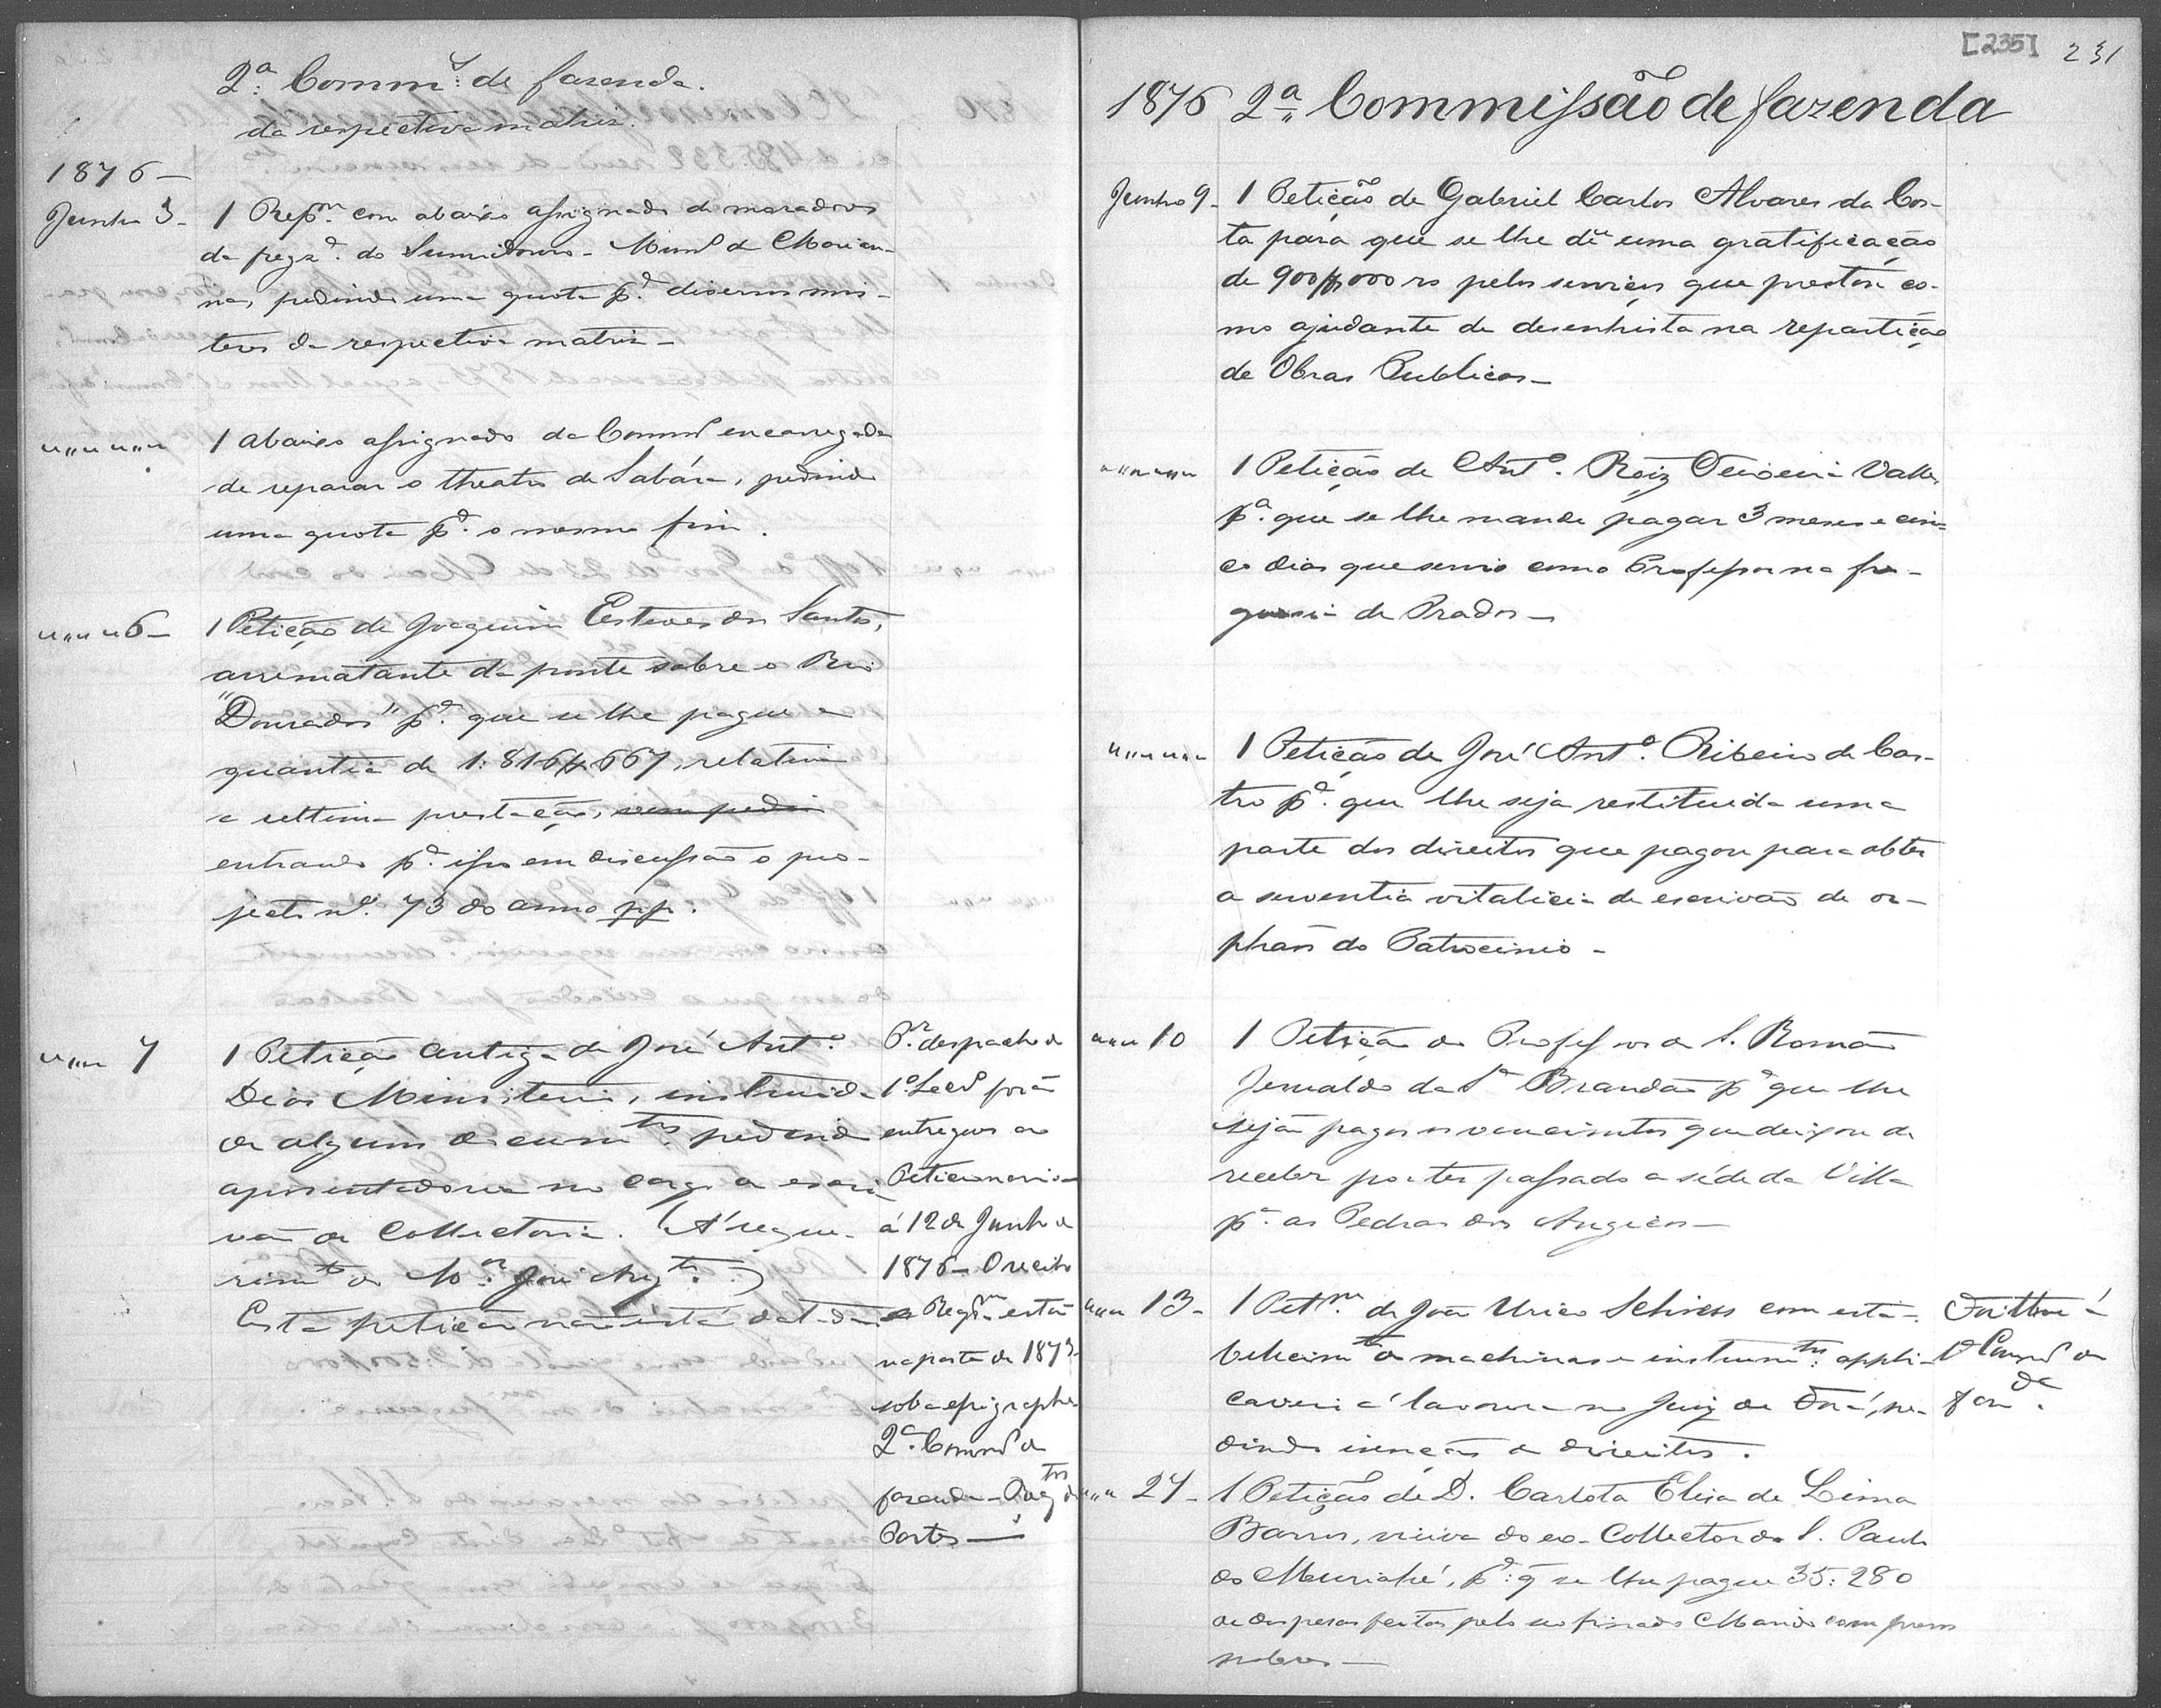 2ª Comm.ᵐ de fazenda.
da respectiva matriz.
1876 —
Junho 3 - 1 Repᵐ com abaixo assignado de moradores
da fregzª. do Sumidouro - Munˡ de Marian-
na, pedindo uma quota pª. diversos mis-
teres da respectiva matriz -
" " " " 1 abaixo assignado da Commᵐ encarregada
de reparar o theatro de Sabará, pedindo
uma quota pª. o mesmo fim.
" " " 6 - 1 Petição de Joaquim Esteves dos Santos,
arrematante da ponte sobre o Rio
"Dourados" pª. que se lhe pague a
quantia de 1:816$667, relativa
a ultima prestação, vem pedir
entrando pª. isso em discussão o pro-
jecto nº. 73 do anno pp.
" " 7 1 Petição antiga de José Antº.
Dias Ministerio, instruida
de alguns documᵗᵒˢ. pedindo
aposentadoria no cargo de escri
vão da Collectoria. (A' reque-
rimᵗᵒ do
Esta petição não está datada
Pʳ. despacho do
1º Secrº forão
entregues ao
Peticionario
á 12 de Junho de
1876 - O recibo
e Regᵐ estão
na pasta de 1873
sob a epigraphe
2ª Commᵐ de
fazenda -
Partes —
[235] 231
1876 2ª Commissão de fazenda
Junho 9 - 1 Petição de Gabriel Carlos Alvares da Cos-
ta para que se lhe dê uma gratificação
de 900$000 rs pelos serviços que prestou co-
mo ajudante de desenhista na repartição
de Obras Publicas -
" " " " 1 Petição de Antº. Roiz Teixeira Valle,
pª. que se lhe mande pagar 3 meses e cin-
co dias que servio como Professor na fre-
guesia de Prados -
" " " " 1 Petição de José Antº. Ribeiro de Cas-
tro pª. que lhe seja restituida uma
parte dos direitos que pagou para obter
a serventia vitalicia de escrivão de or-
phãos do Patrocinio -
" " 10 1 Petição do Professor de S. Romão
Jenualdo da Sª Brandão pª que lhe
sejão pagos os vencimentos que deixou de
receber por ter passado a séde da Villa
pª. as Pedras dos Angicos -
" " 13 - 1 Petᵐ. de João Urico Schiess com esta-
belecimᵗᵒ de machinas e instrumᵗᵒˢ. appli-
caveis á lavoura no Juiz de Fóra, pe-
dindo isenção de direitos.
á
1ª Commᵐ de
Fazᵈᵃ.
" " 27 - 1 Petição de D. Carlota Elisa de Lima
Barros, viuva do ex-Collector de S. Paulo
do Muriahé, pª. q se lhe pague 35:280
de despesas feitas pelo seo finado Marido com presos
pobres —